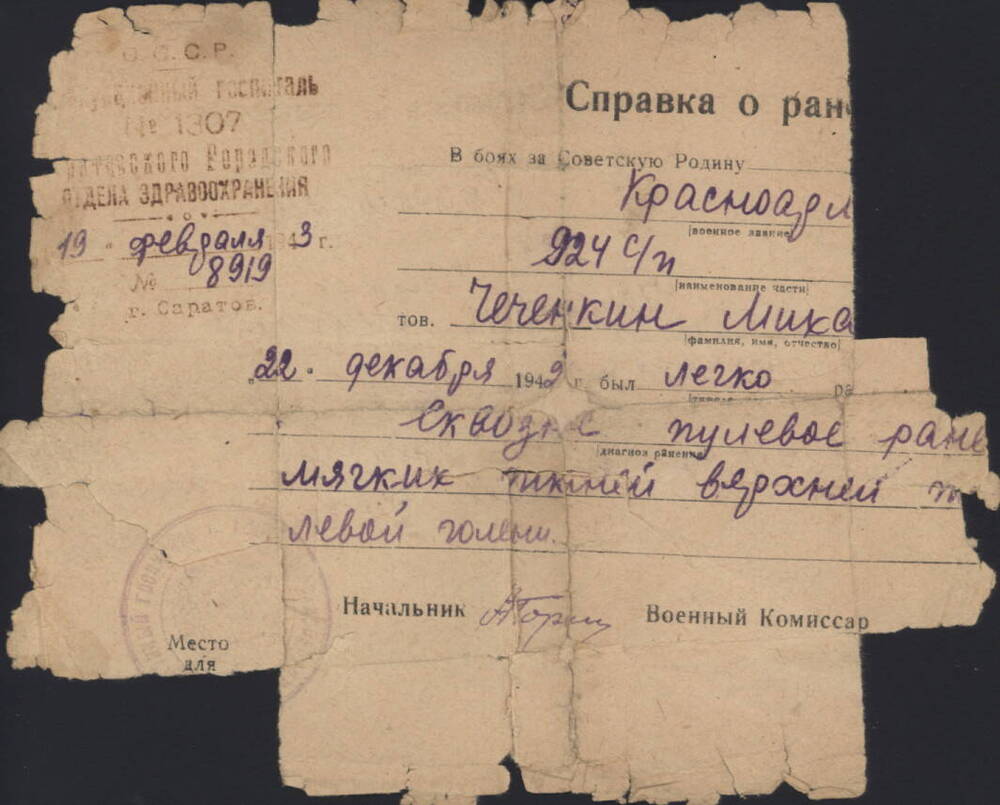 С.С.С.Р.
госпиталь
№ 1307
Городского
ОТДЕЛА ЗДРАВООХРАНЕНИЯ
19 " февраля 1943 г.
№ 8919
г. Саратов.
Справка о ран
В боях за Советскую Родину
Красноар
(военное звание)
924 с/п
(наименование части)
тов. Чеченкин Миха
(фамилия, имя, отчество)
"22" декабря 1942 г. был легко ра
Сквозное пулевое ране
(диагноз ранения
мягких тканей верхней
левой голени.
Начальник Военный Комиссар
Место
для